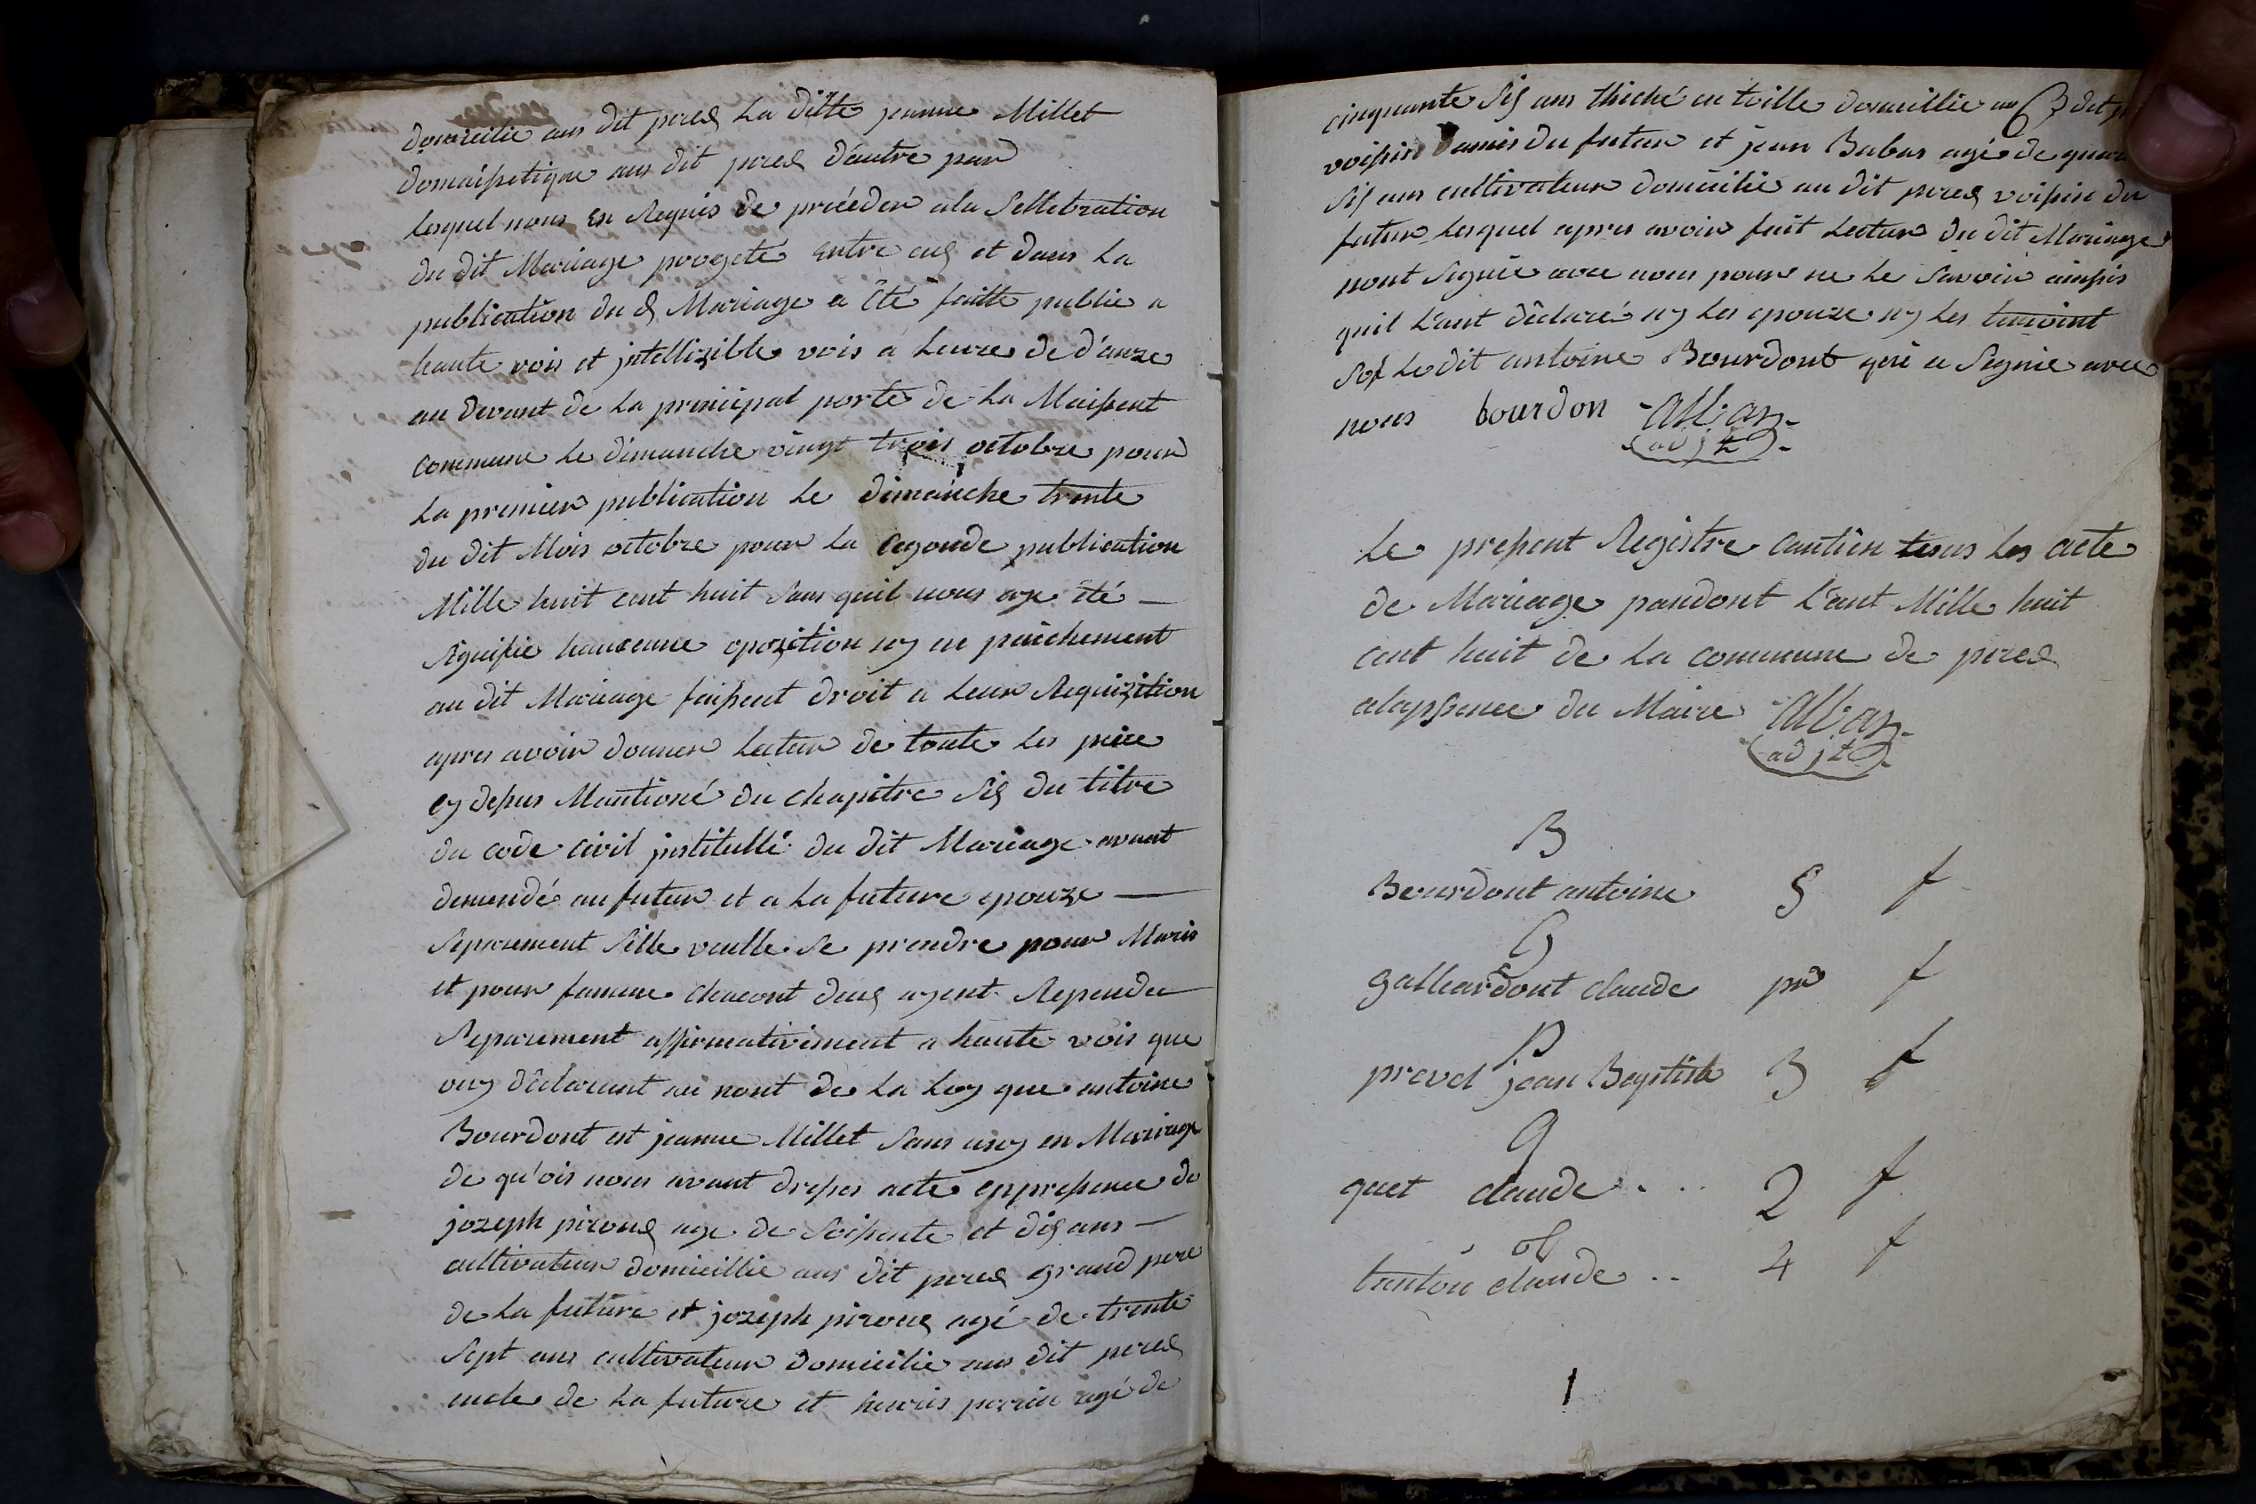 domicilie aus dit peres La ditte jeanne Millet
domaisetique aus dit peres d'autre pard
Lesquel nous en Requis de procéder ala Sellebration
du dit Mariage progeté entre eus et dans La
publication du s Mariage a été faitte publie a
haute vois et jntellizible vois a Leure de d'anze
au devant de La principal porte de La Maisent
commune Le dimanche vingt trois octobre pour
La premier publication Le dimanche trente
du dit Mois octobre pour La cegonde publication
Mille huit cent huit Sans quil nous aye été
Signifie haucunne opozition ny en paichement
au dit Mariage faisent droit a Leur Requizition
apres avoir donner Lectur de toute les piece
cy desus Mantioné du chapitre Sis du titre
du code civil jnstitullé du dit Mariage avant
demendé au futur et a La future epouze
Separement Sille veulle Se prendre pour Maris
et pour famme chacont deus ayent Repondu
Separement affirmativement a haute vois que
ouy déclarant au nont de La Loy que antoine
Bourdont et jeanne Millet Sans uny en Mariage
de qu'ois nous avant dresser acte appresence de
jozeph pirous age de Soisente et dis ans
cultivateur domicillie aus dit peres grand pere
de La future et jozeph pirous agé de trente
Sept ans cultivateur domicilie aus dit peres
oncle de La future et perrin agé de
cinquante Sis ans thiché en toille domicillie au dit
voisin d'amis du futur et jean Babas agé de
Sis ans cultivateur domicilié au dit peres voisin du
futur Lesquel apres avoir fait Lectur du dit Mariage
nont Signie avec nous pour ne Le Savoir ainsis
quil L'ant déclaré ny Les epouze ny Les temoint
Sof Le dit antoine Bourdont qui a Signie avec
nous bourdon alban
adjt
Le present Registre cantien tous Les acte
de Mariage pandont L'ant Mille huit
cent huit de La commune de peres
alapssence du Maire alban
adjt
B
Bourdont antoine 5 f
G
galliardont claude pr f
P
prevel jean Baptiste 3 f
q
quet claude 2 f
t
tantou claude 4 f